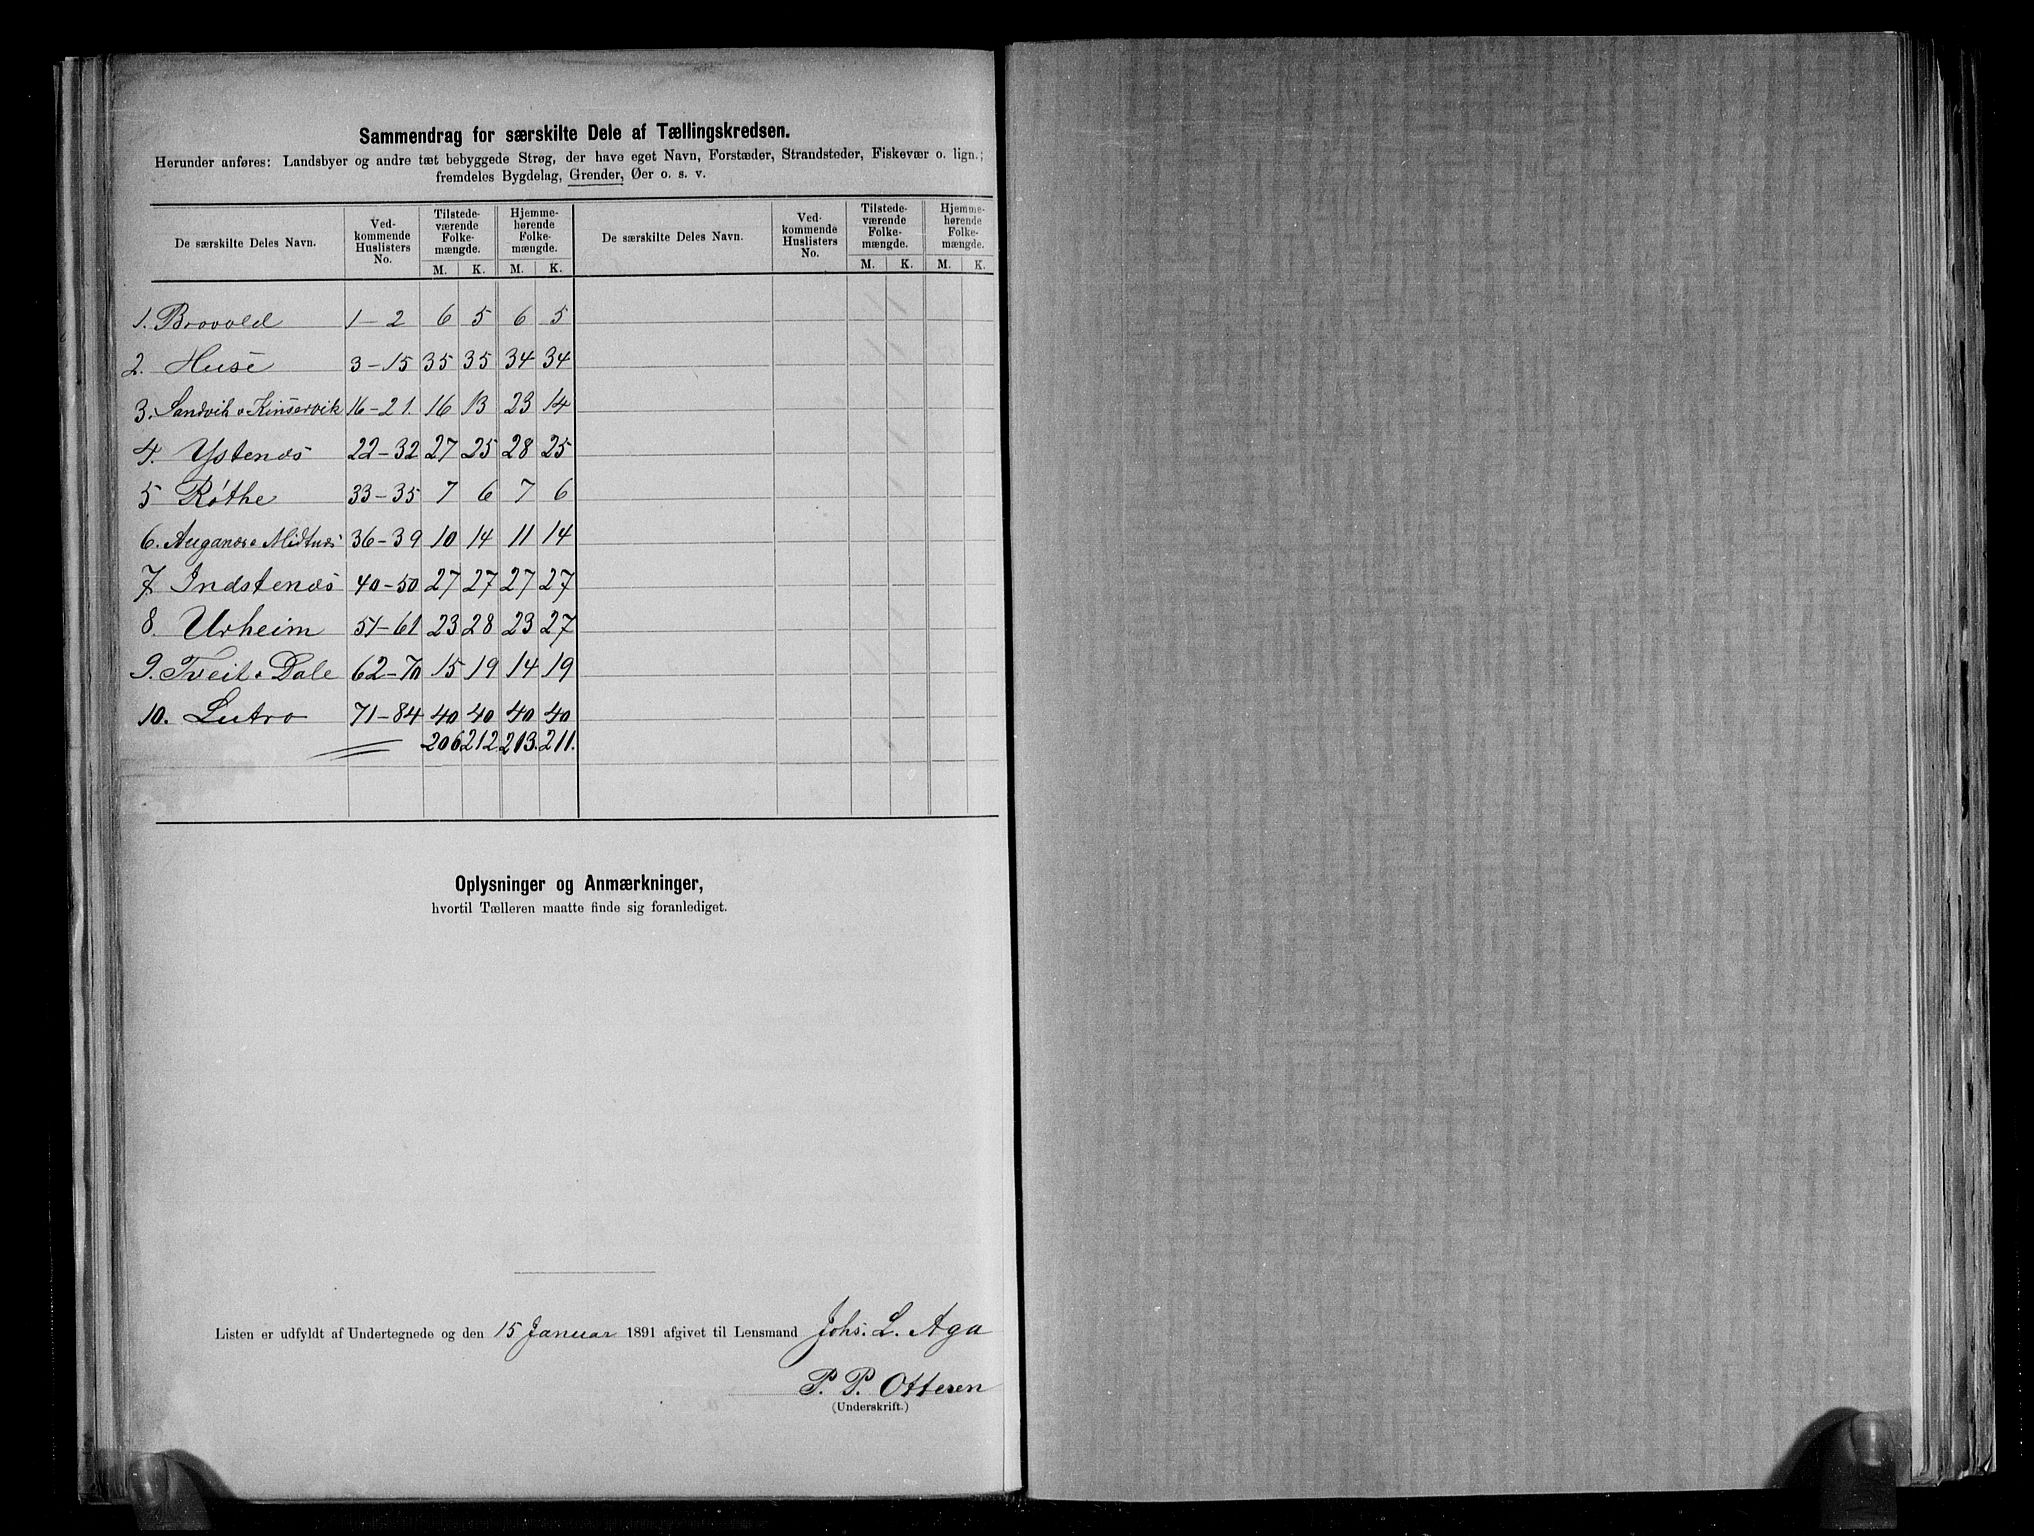 Sammendrag for særskilte Dele af Tællingskredsen.
Herunder anføres: Landsbyer og andre tæt bebyggede Strøg, der have eget Navn, Forstæder, Strandsteder, Fiskevær o. lign.;
fremdeles Bygdelag, Grender, Øer o. s. v.
De særskilte Deles Navn. Ved-kommende Huslisters No. Tilstede-værende Folke-mængde. Hjemme-hørende Folke-mængde. De særskilte Deles Navn. Ved-kommende Huslisters No. Tilstede-værende Folke-mængde. Hjemme-hørende Folke-mængde.
M. K. M. K. M. K. M. K.
1. Brovold 1-2 6 5 6 5
2. Huse 3-15 35 35 34 34
3. Sandvik o Kinservik 16-21. 16 13 23 14
4. Ystenæs 22-32 27 25 28 25
5 Røthe 33-35 7 6 7 6
6. Auganæs o Midtnæs 36-39 10 14 11 14
7 Indstenæs 40-50 27 27 27 27
8. Urheim 51-61 23 28 23 27
9. Tveit o Dale 62-70 15 19 14 19
10. Lutro 71-84 40 40 40 40
206 212 213. 211.
Oplysninger og Anmærkninger,
hvortil Tælleren maatte finde sig foranlediget.
Listen er udfyldt af Undertegnede og den 15 Januar 1891 afgivet til Lensmand Johs. L. Aga
P. P. Ottesen
(Underskrift.)